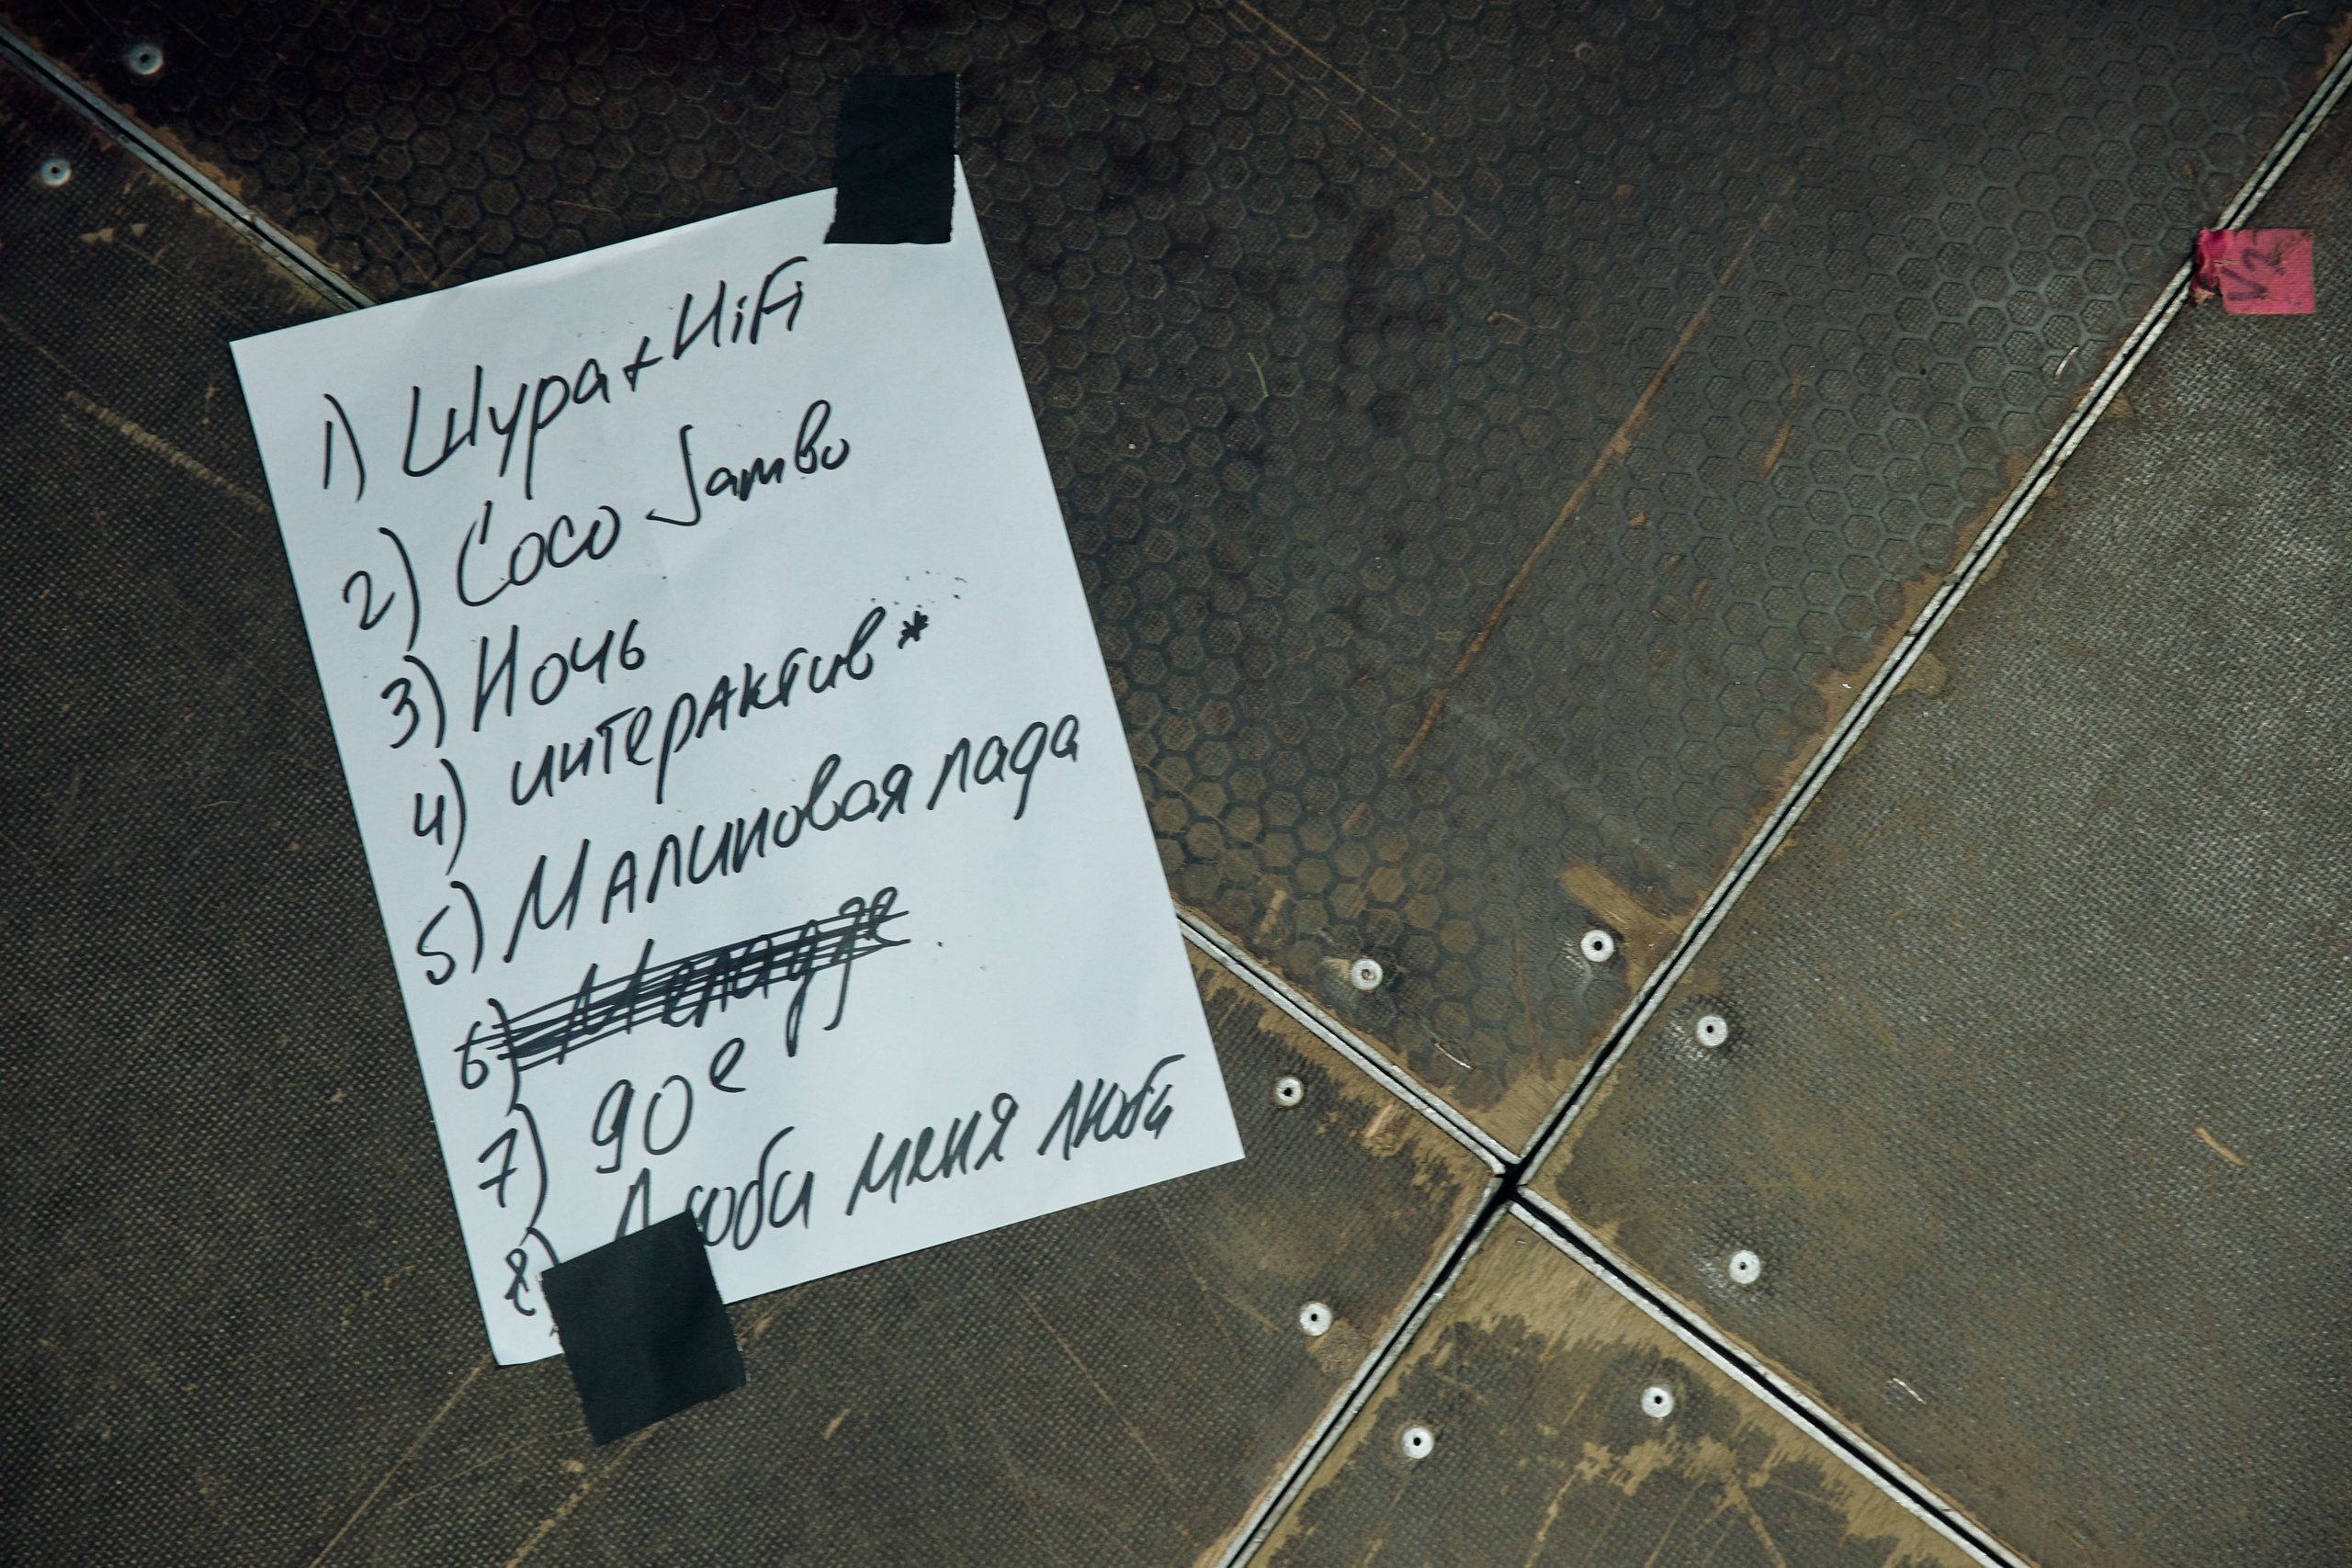 1) Шура + HiFi
2) Coco Jambo
3) Ночь
4) интерактив*
5) Малиновая лада
6) Меладзе
7) 90е
8) Люби меня люби
V2